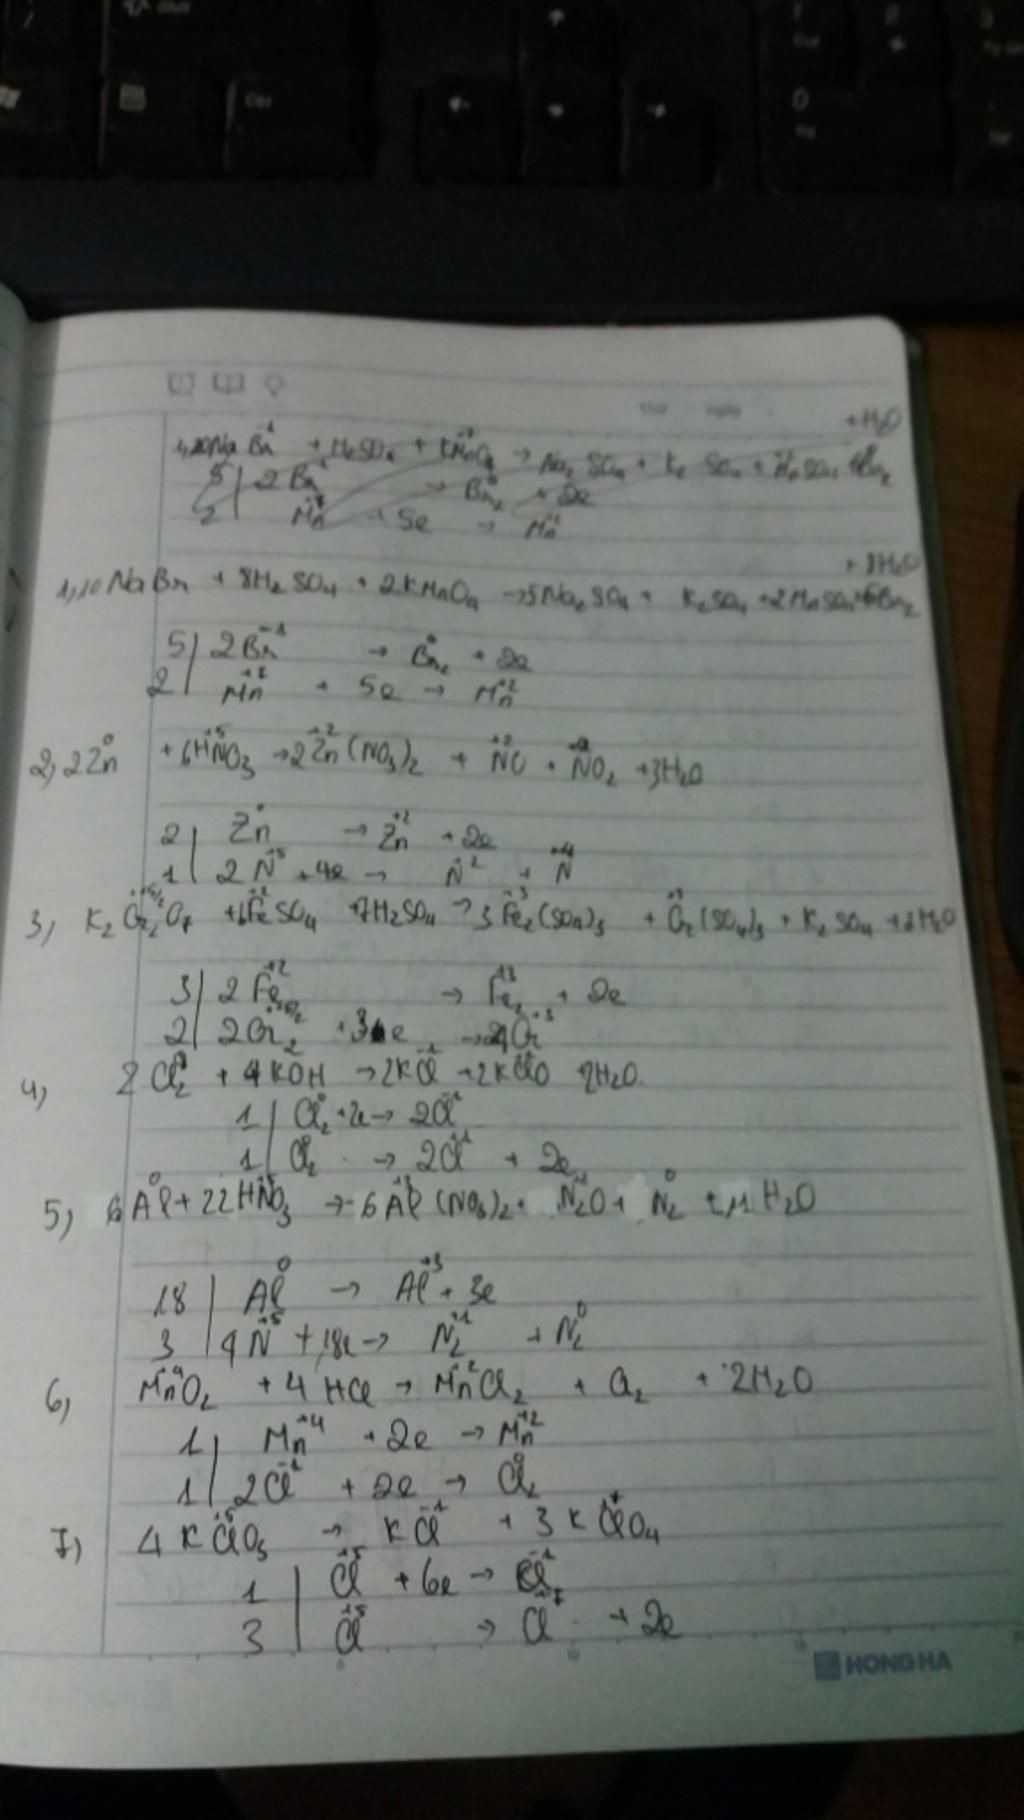 Shift
Ctrl
1
2
3
0
Thứ ngày
+ H2O
NaBr + H2SO4 + KMnO4 → Na2SO4 + K2SO4 + MnSO4 + Br2
5 | 2Br → Br2 + 2e
2 | Mn + 5e → Mn
+ 8H2O
1, 10NaBr + 8H2SO4 + 2KMnO4 → 5Na2SO4 + K2SO4 + 2MnSO4 + 5Br2
5 | 2Br⁻¹ → Br2⁰ + 2e
2 | Mn + 5e → Mn⁺²
2, 2Zn⁰ + 6HN⁺⁵O3 → 2Zn⁺²(NO3)2 + N⁺²O + NO2 + 3H2O
2 | Zn⁰ → Zn⁺² + 2e
1 | 2N⁺⁵ + 4e → N⁺² + N⁺⁴
3, K2Cr2O7 + 6Fe⁺²SO4 + 7H2SO4 → 3Fe2⁺³(SO4)3 + Cr2(SO4)3 + K2SO4 + H2O
3 | 2Fe⁺² → Fe2⁺³ + 2e
2 | 2Cr + 3e → Cr⁺³
4, 2Cl2⁰ + 4KOH → 2KCl⁻¹ + 2KClO + 2H2O
1 | Cl2⁰ + 2e → 2Cl⁻¹
1 | Cl2⁰ → 2Cl⁺¹ + 2e
5, 6Al⁰ + 22HN⁺⁵O3 → 6Al⁺³(NO3)2 + N2⁺¹O + N2⁰ + 11H2O
18 | Al⁰ → Al⁺³ + 3e
3 | 4N⁺⁵ + 18e → N2⁺¹ + N2⁰
6, Mn⁺⁴O2 + 4HCl → Mn⁺²Cl2 + Cl2 + 2H2O
1 | Mn⁺⁴ + 2e → Mn⁺²
1 | 2Cl⁻¹ + 2e → Cl2⁰
7) 4KCl⁺⁵O3 → KCl⁻¹ + 3KCl⁺⁷O4
1 | Cl⁺⁵ + 6e → Cl⁻¹
3 | Cl⁺⁵ → Cl⁺⁷ + 2e
5 10 15
HONG HA